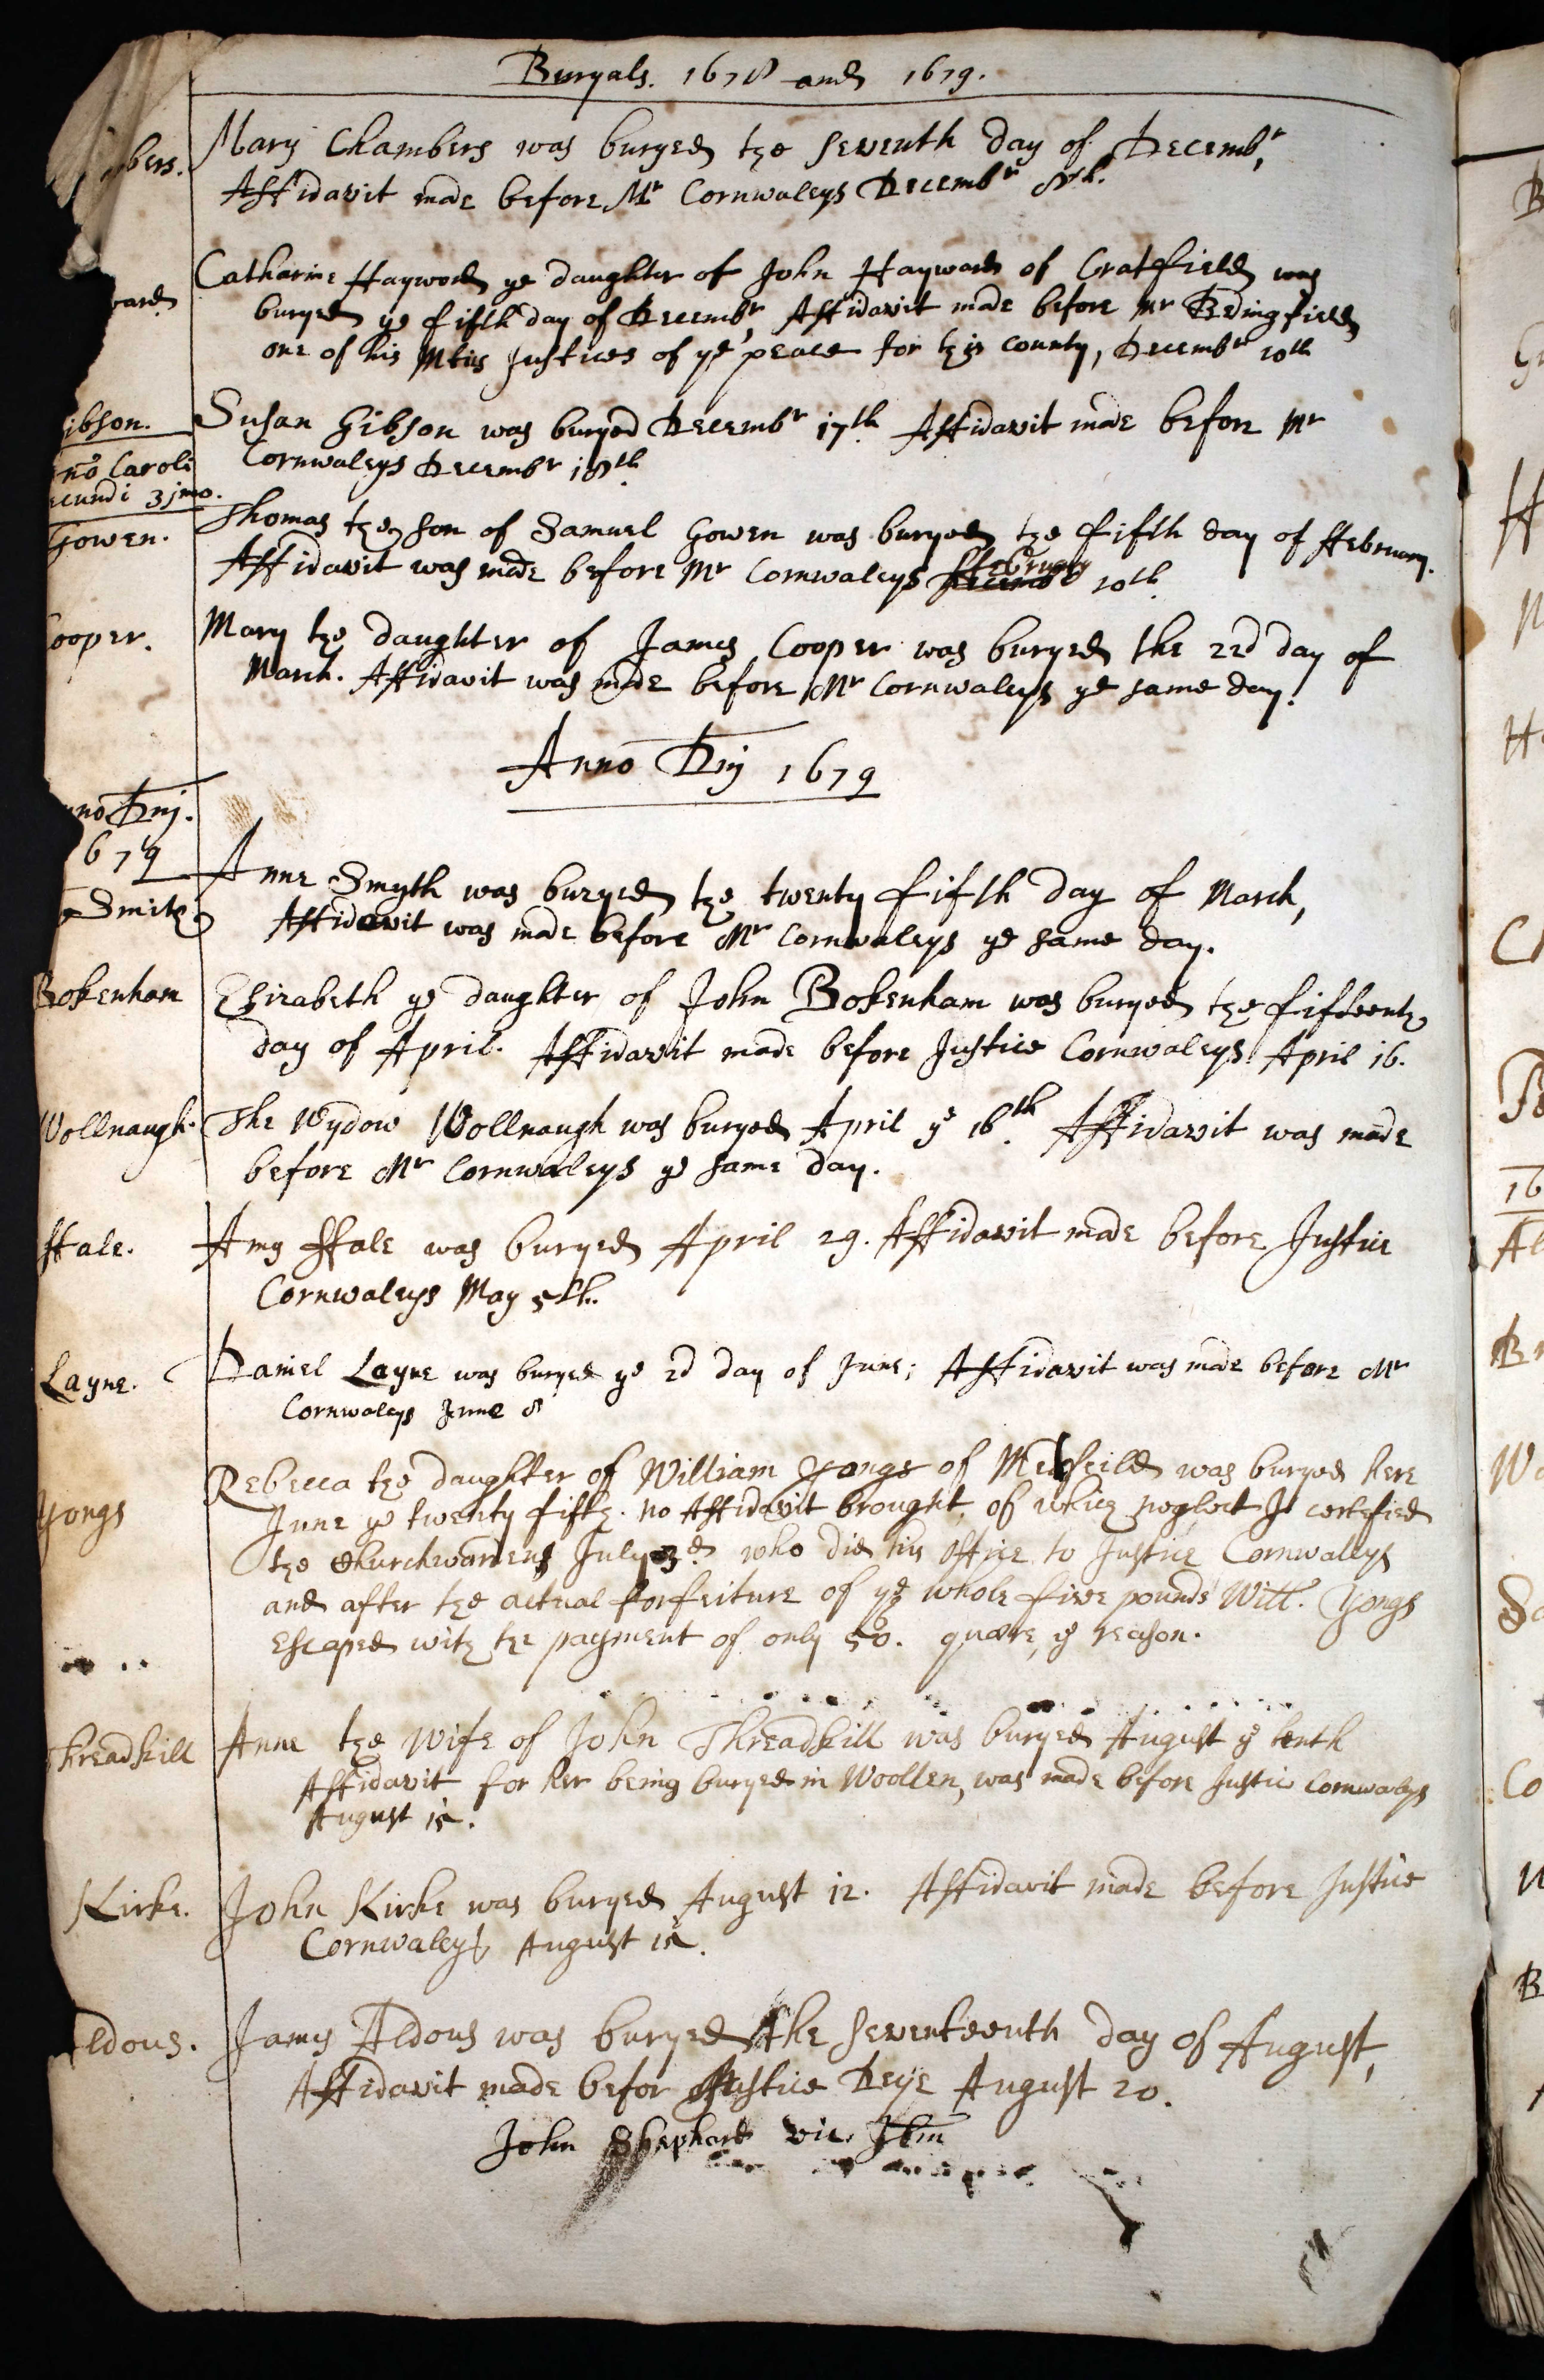 Buryals. 1678 and 1679.
mbers.
Mary Chambers was buryed the seventh day of Decembr,
Affidavit made before Mr Cornwaleys Decembr 8th.
ward
Catharine Hayward ye daughter of John Hayward of Cratfield was
buryed ye fifth day of Decembr, Affidavit made before Mr Bedingfield
one of his Mtis Justices of ye peace for this county, Decembr 10th
ibson.
Susan Gibson was buryed Decembr 17th Affidavit made before Mr
Cornwaleys Decembr 18th.
no Caroli
ecundi 31mo.
Gowen.
Thomas the son of Samuel Gowen was buryed the fifth day of ffebruary.
Affidavit was made before Mr Cornwaleys ffebruary 10th.
ooper.
Mary the daughter of James Cooper was buryed the 22d day of
March. Affidavit was made before Mr Cornwaleys ye same day.
Anno Dnj 1679
nno Dnj.
679
Smith
Anne Smyth was buryed the twenty fifth day of March,
Affidavit was made before Mr Cornwaleys ye same day.
Bokenham
Elizabeth ye daughter of John Bokenham was buryed the fifteenth
day of April. Affidavit made before Justice Cornwaleys April 16.
Wollnaugh.
The Wydow Wollnaugh was buryed April ye 16th. Affidavit was made
before Mr Cornwaleys ye same day.
ffale.
Amy ffale was buryed April 29. Affidavit made before Justice
Cornwaleys May 5th.
Layne.
Daniel Layne was buryed ye 2d day of June; Affidavit was made before Mr
Cornwaleys June 8
Yongs
Rebecca the daughter of William Yongs of was buryed here
June ye twenty fifth. no Affidavit brought, of which neglect I certefied
the Churchwardens July 3d. who did his office to Justice Cornwaleys
and after the actual forfeiture of ye whole five pounds Will. Yongs
escaped with the payment of only 50. quære, ye reason.
Threadkill
Anne the Wife of John Threadkill was buryed August ye tenth
Affidavit for her being buryed in Woollen, was made before Justice Cornwaleys
August 15.
Kirke.
John Kirke was buryed August 12. Affidavit made before Justice
Cornwaleys August 15.
ldous.
James Aldous was buryed the seventeenth day of August,
Affidavit made befor Justice Deye August 20.
John Shephard vic. Ibm